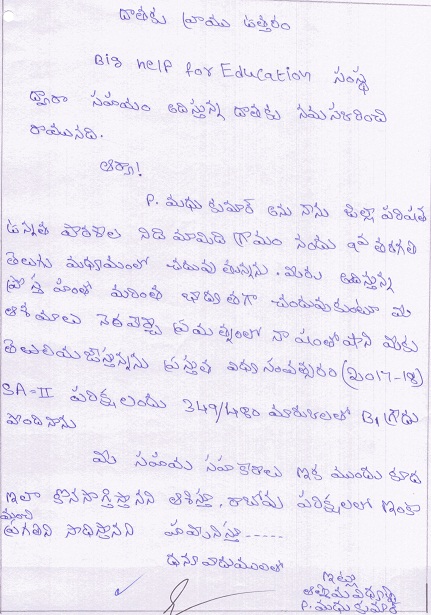 దాతకు వ్రాయు ఉత్తరం
Big help for Education సంస్థ
ద్వారా సహయం అదిస్తున్న దాతకు నమసకరించి
రాయునది.
ఆర్యా!
P. మధు కుమార్ అను నాను జిల్లా పరిషత
ఉన్నత పాఠశాల నిడిమామిది గ్రామం నందు 9వ తరగతి
తెలుగు మధ్యమంలో చదువు తున్నను. మీరు అదిస్తున్న
ప్రోత్స హంతో మరింత బాధ్యతగా చందువుకుంటూ మీ
ఆశయాలు నెరవేర్చే ప్రయత్నంలో నా సంతోషాని మీకు
తెలియజేస్తన్నను ప్రస్తుత విద్యాసంవత్సరం (2017-18)
SA-II పరిక్షలందు 349/480 మారుకలతో B1 గ్రాడు
పొందినాను
మీ సహయ సహకారాలు ఇక ముందు కూడ
ఇలా కొనసాగిస్తానని ఆశిస్తూ, రాబోయి పరిక్షలలో ఇంకా
మంచి
ప్రగతిని సాధిస్తానని హమినిస్తూ-----
ధన్యవాదములతో
ఇట్లు
ఆత్మీయ విద్యార్థి
P. మధు కుమార్